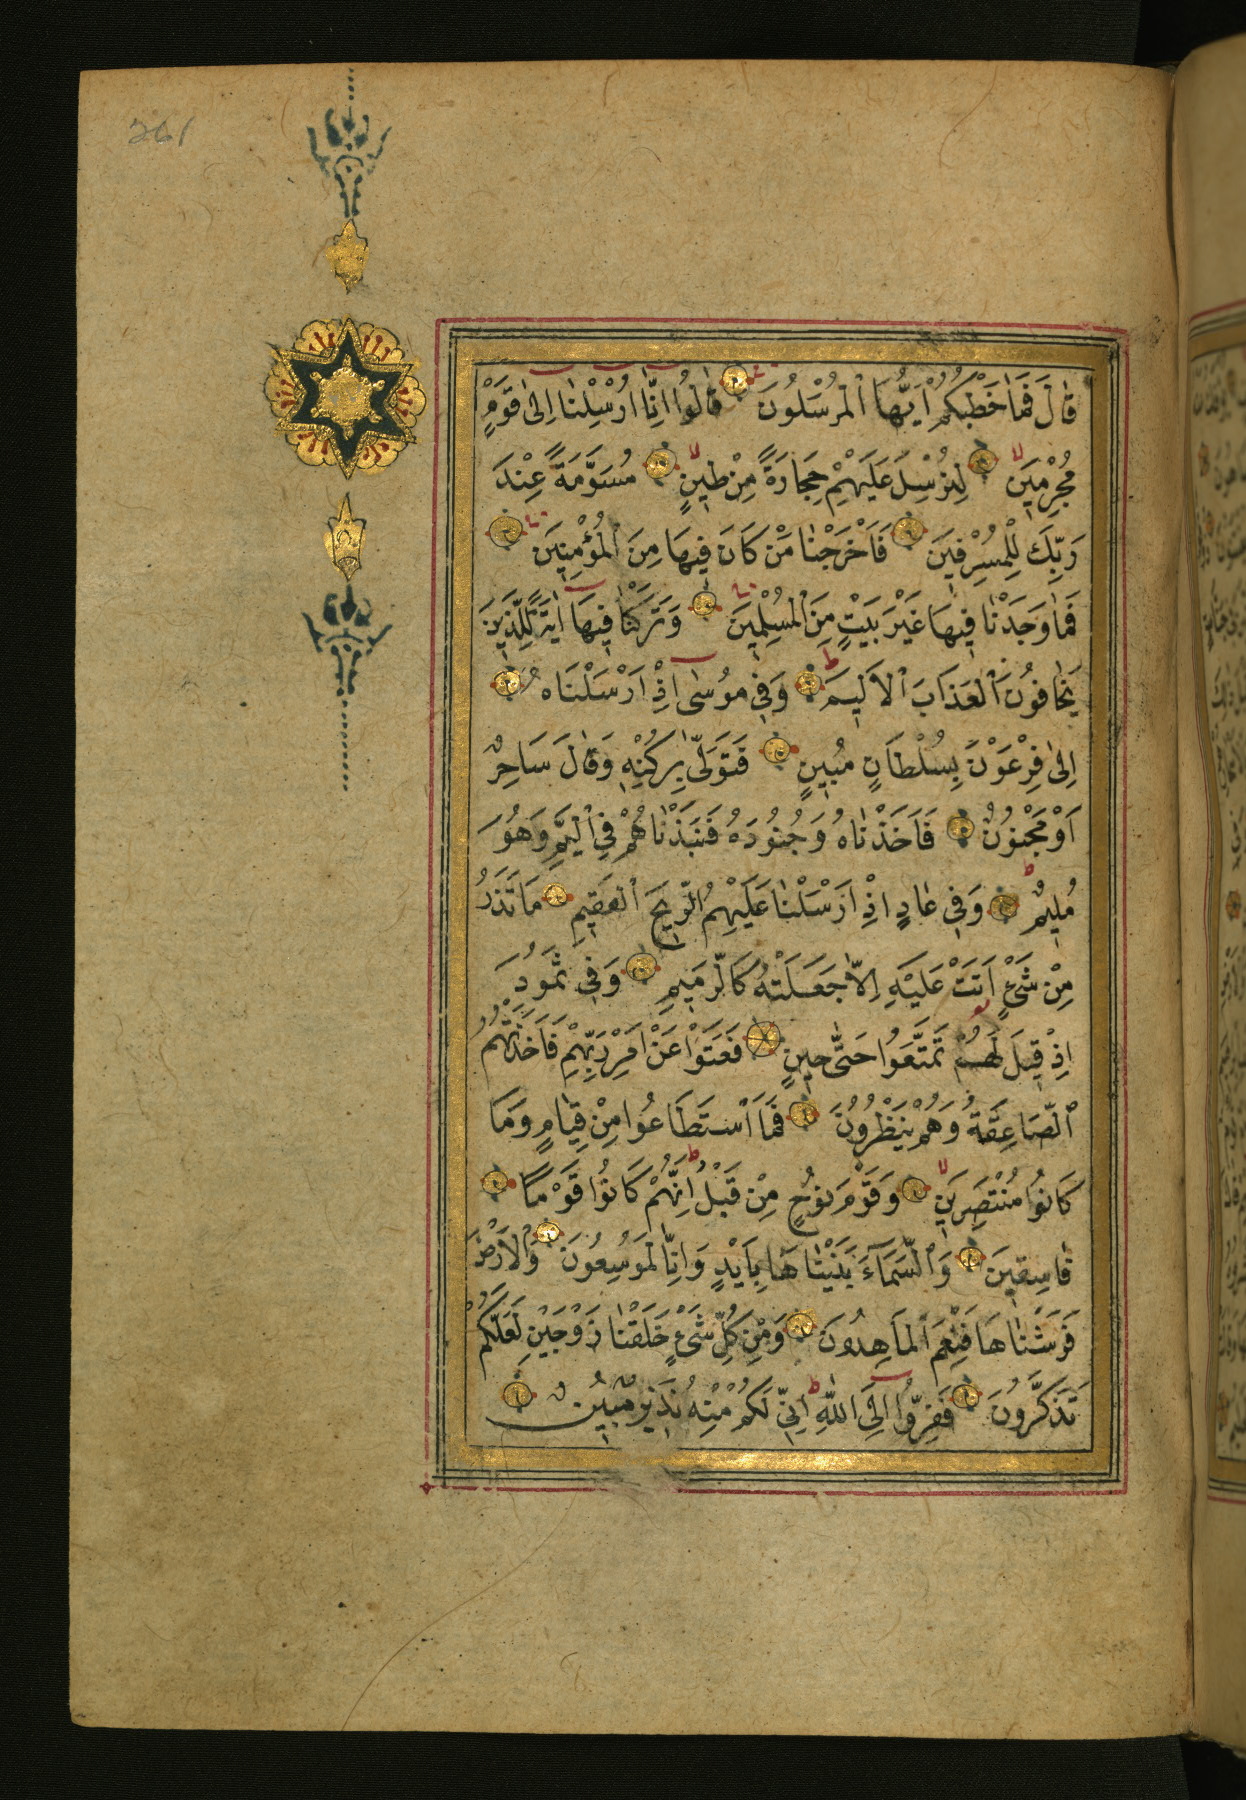 261
قَالَ فَمَا خَطْبُكُمْ اَيُّهَا الْمُرْسَلُونَ قَالُوا اِنَّا اُرْسِلْنَا اِلٰى قَوْمٍ
مُجْرِمِينَ لِنُرْسِلَ عَلَيْهِمْ حِجَارَةً مِنْ طِينٍ مُسَوَّمَةً عِنْدَ
رَبِّكَ لِلْمُسْرِفِينَ فَاَخْرَجْنَا مَنْ كَانَ فِيهَا مِنَ الْمُؤْمِنِينَ
فَمَا وَجَدْنَا فِيهَا غَيْرَ بَيْتٍ مِنَ الْمُسْلِمِينَ وَتَرَكْنَا فِيهَا اٰيَةً لِلَّذِينَ
يَخَافُونَ الْعَذَابَ الْاَلِيمَ وَفِي مُوسٰى اِذْ اَرْسَلْنَاهُ
اِلٰى فِرْعَوْنَ بِسُلْطَانٍ مُبِينٍ فَتَوَلّٰى بِرُكْنِهِ وَقَالَ سَاحِرٌ
اَوْ مَجْنُونٌ فَاَخَذْنَاهُ وَجُنُودَهُ فَنَبَذْنَاهُمْ فِي الْيَمِّ وَهُوَ
مُلِيمٌ وَفِي عَادٍ اِذْ اَرْسَلْنَا عَلَيْهِمُ الرِّيحَ الْعَقِيمَ مَا تَذَرُ
مِنْ شَيْءٍ اَتَتْ عَلَيْهِ اِلَّا جَعَلَتْهُ كَالرَّمِيمِ وَفِي ثَمُودَ
اِذْ قِيلَ لَهُمْ تَمَتَّعُوا حَتّٰى حِينٍ فَعَتَوْا عَنْ اَمْرِ رَبِّهِمْ فَاَخَذَتْهُمُ
الصَّاعِقَةُ وَهُمْ يَنْظُرُونَ فَمَا اسْتَطَاعُوا مِنْ قِيَامٍ وَمَا
كَانُوا مُنْتَصِرِينَ وَقَوْمَ نُوحٍ مِنْ قَبْلُ اِنَّهُمْ كَانُوا قَوْمًا
فَاسِقِينَ وَالسَّمَاءَ بَنَيْنَاهَا بِاَيْدٍ وَاِنَّا لَمُوسِعُونَ وَالْاَرْضَ
فَرَشْنَاهَا فَنِعْمَ الْمَاهِدُونَ وَمِنْ كُلِّ شَيْءٍ خَلَقْنَا زَوْجَيْنِ لَعَلَّكُمْ
تَذَكَّرُونَ فَفِرُّوا اِلَى اللّٰهِ اِنِّي لَكُمْ مِنْهُ نَذِيرٌ مُبِينٌ